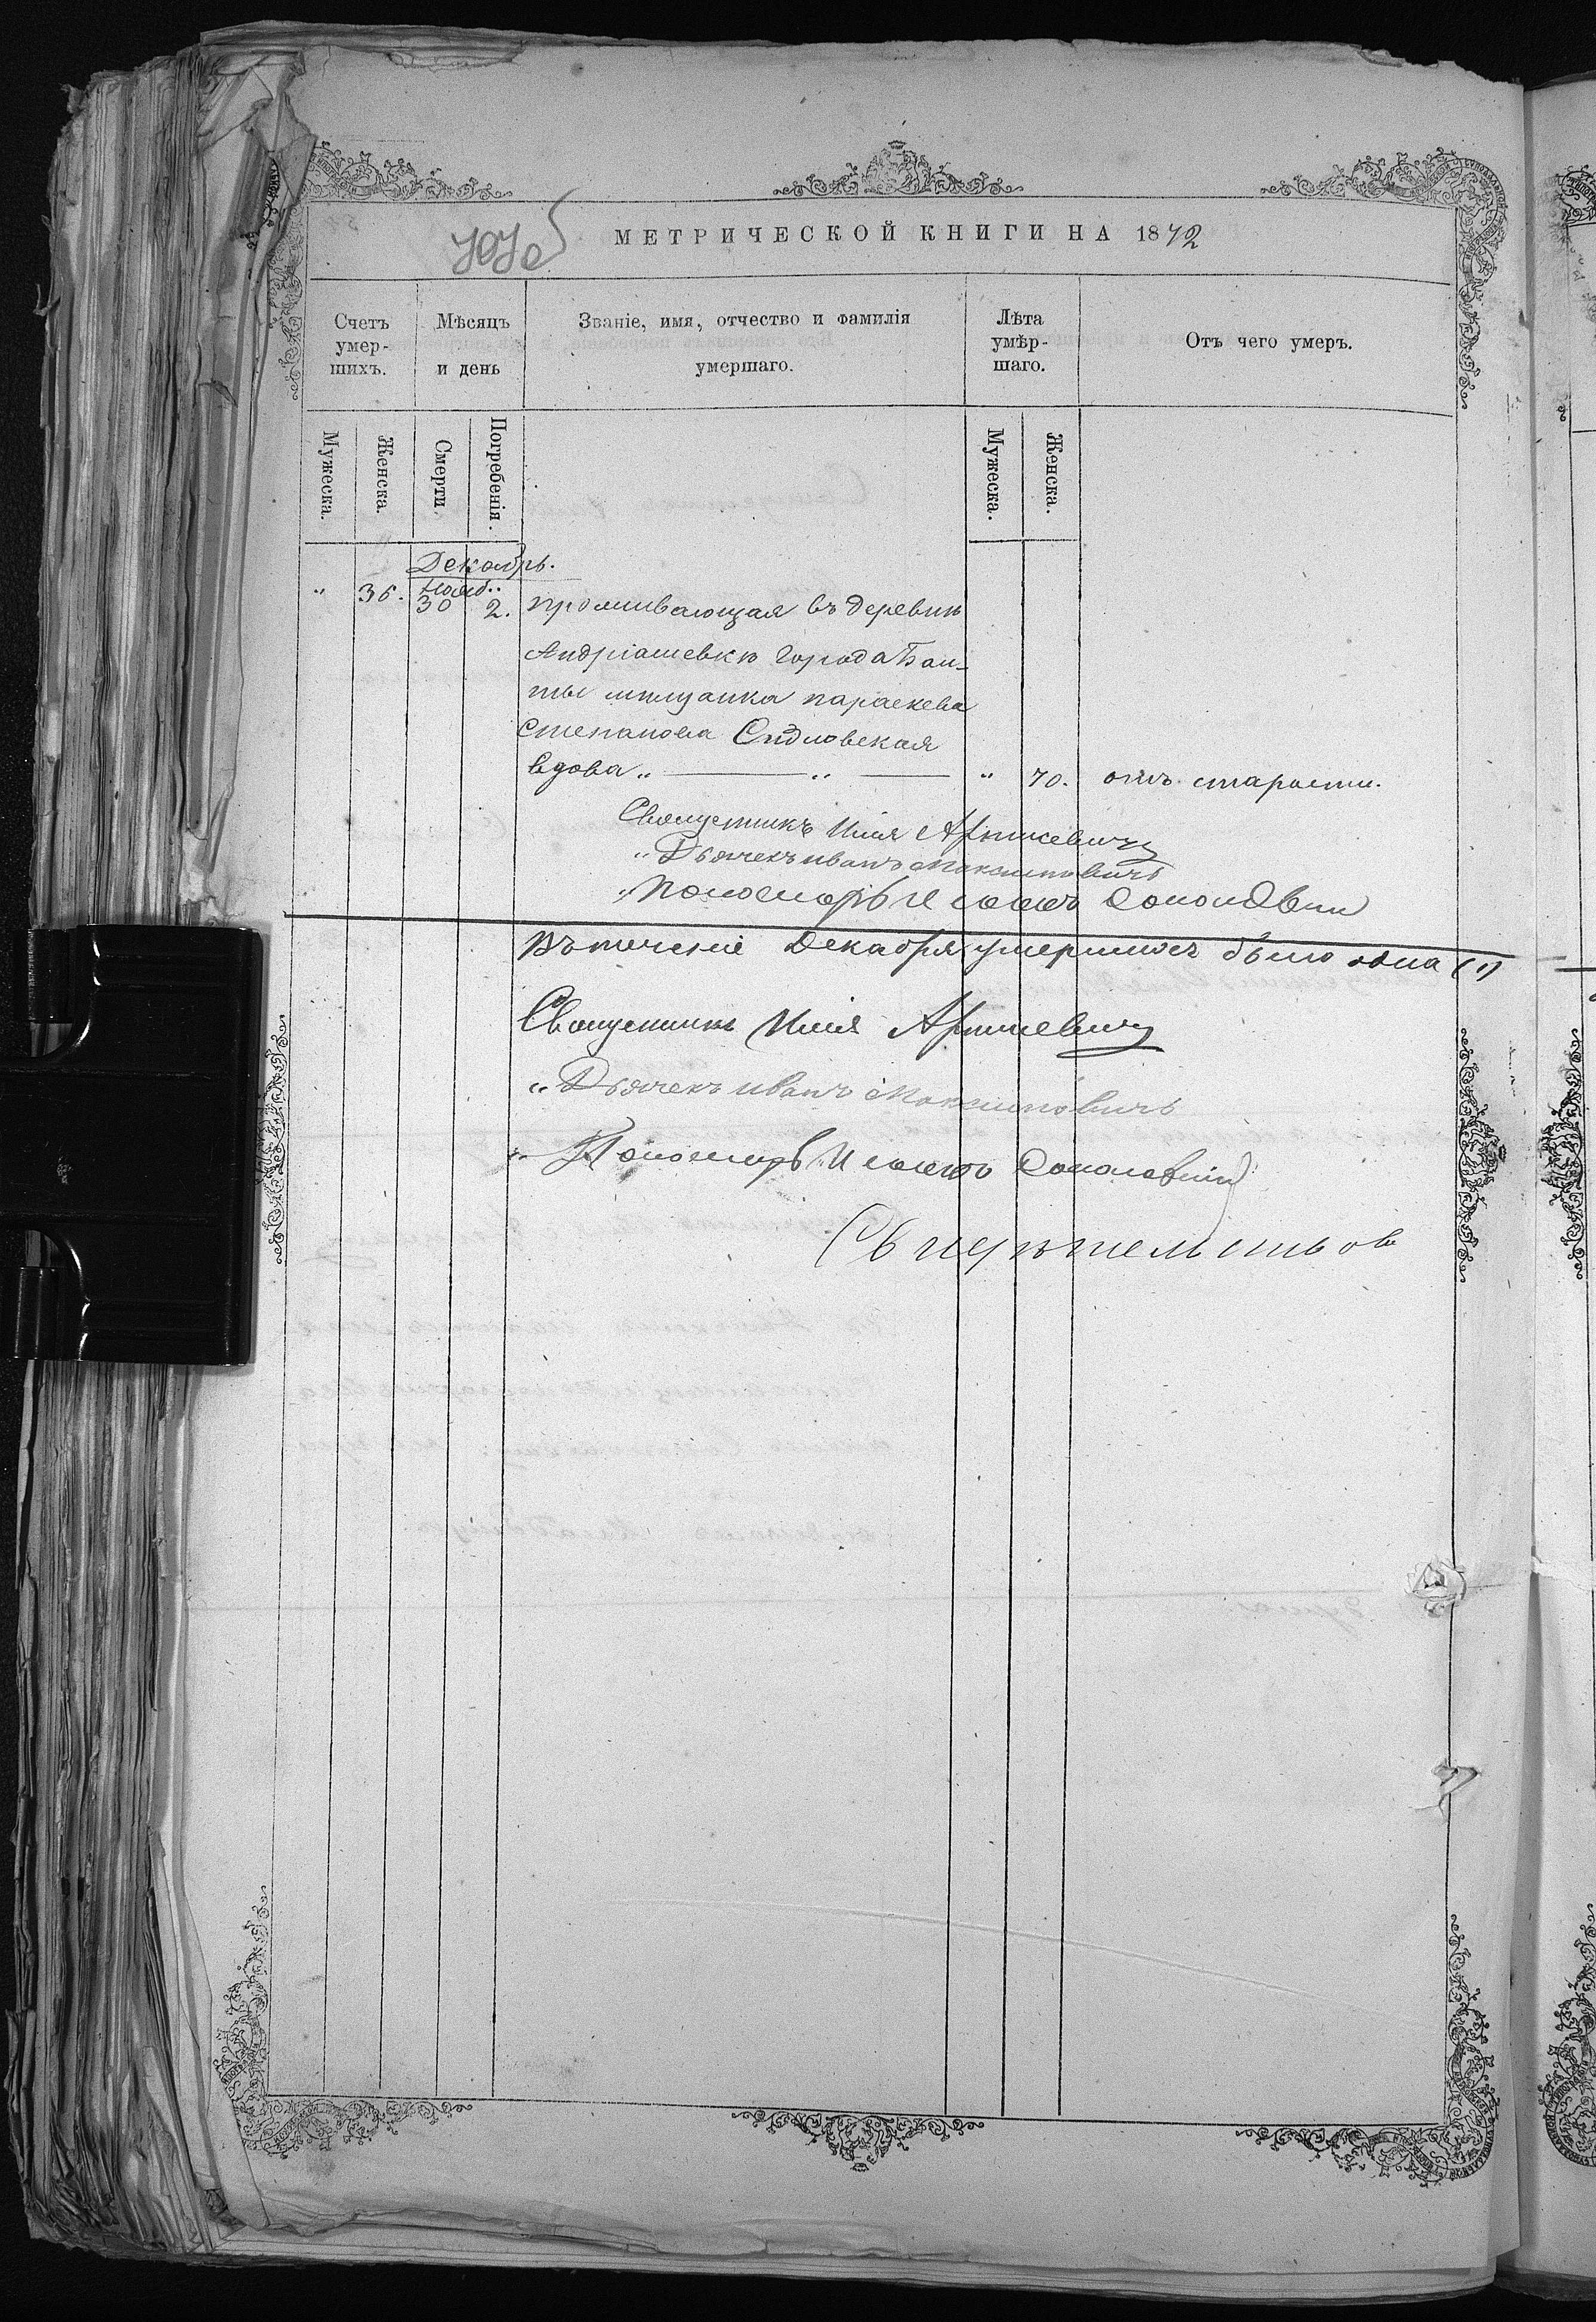 МЕТРИЧЕСКОЙ КНИГИ НА 1872
Счетъ умер-шихъ.
Мѣсяцъ и день
Званіе, имя, отчество и фамилія умершаго.
Лѣта умѣр-шаго.
Отъ чего умеръ.
Мужеска.
Женска.
Смерти.
Погребенія.
Мужеска.
Женска.
Декабрь.
" 36. Нояб. 30 2. проживающая въ деревнѣ
Андріяшевкѣ города Бал-
ты мѣщанка Параскева
Степанова Садловская
вдова " " " 70. отъ старости.
Священникъ Илія
" Дьячекъ Иванъ Максимовичъ
" Пономарь
Въ теченіе Декабря умершихъ было одна (1)
Священникъ Илія
" Дьячекъ Иванъ Максимовичъ
" Пономарь